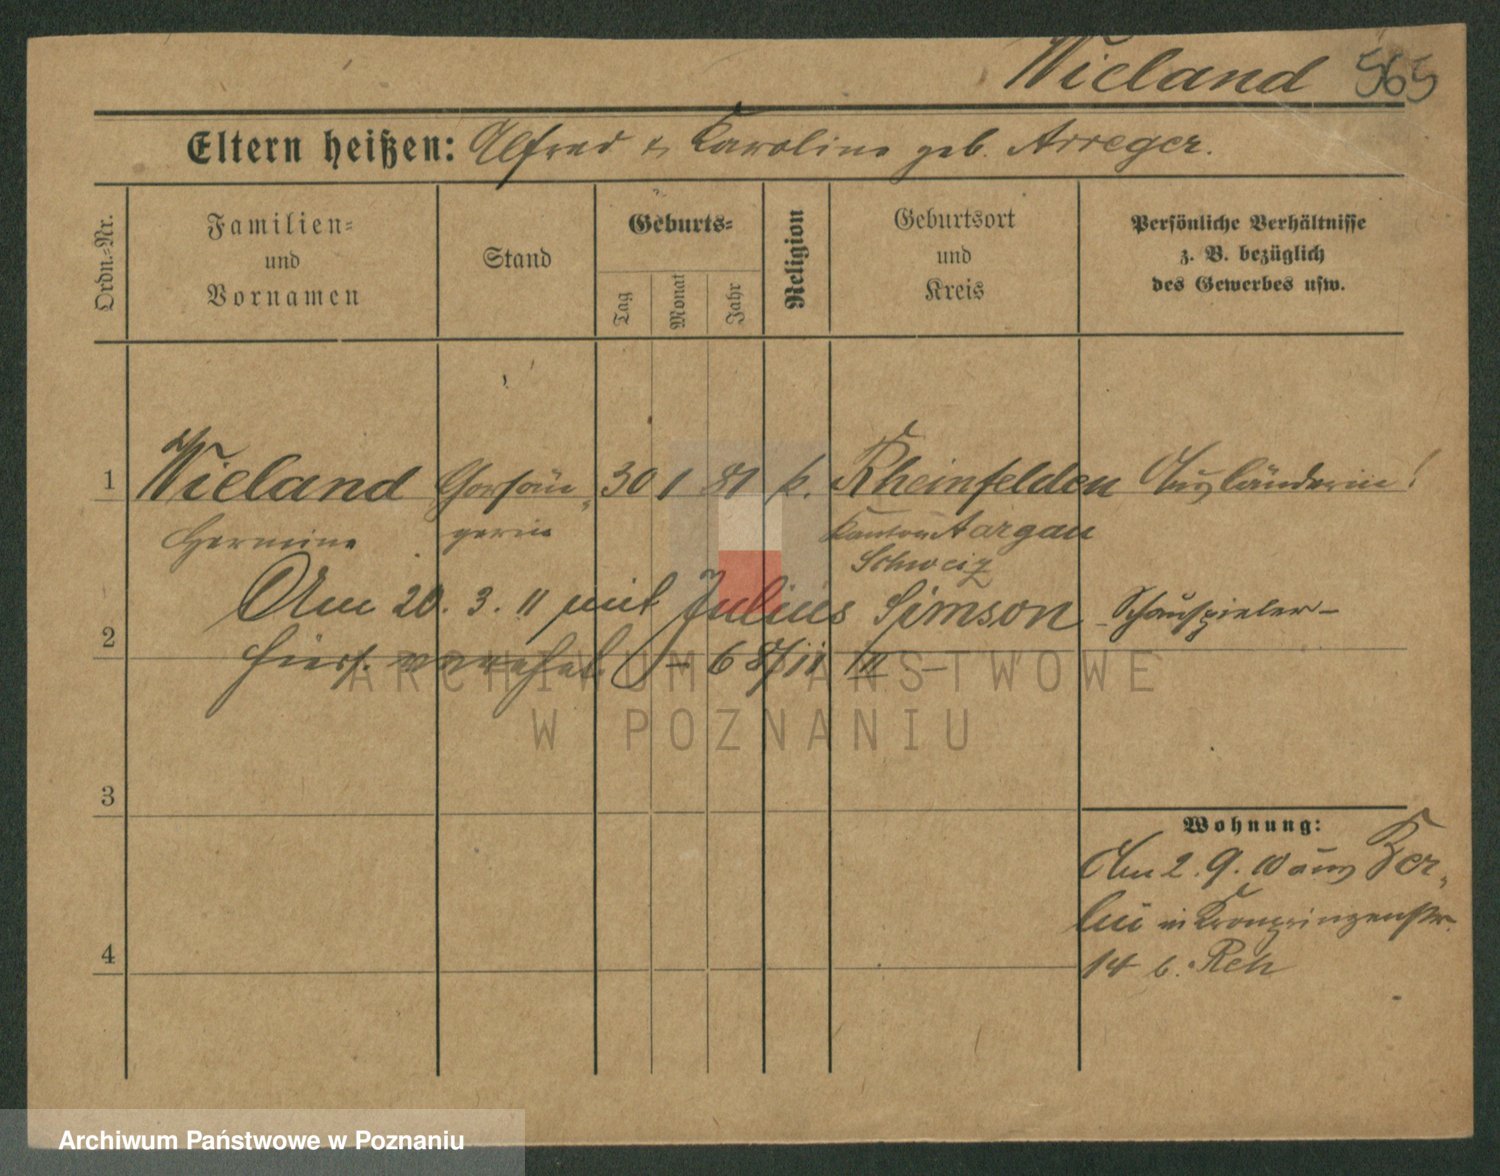 Wieland 565
Eltern heißen: Alfred & Karoline geb. Arreger.
Ordn.=Nr.
Familien=
und
Vornamen
Stand
Geburts=
Tag
Monat
Jahr
Religion
Geburtsort
und
Kreis
Persönliche Verhältnisse
z. B. bezüglich
des Gewerbes usw.
1 Wieland Chorsän- 30 1 81 k. Rheinfelden Ausländerin!
Hermine gerin Kanton Aargau
Schweiz
Am 20. 3. 11 mit Julius Simson Schauspieler
2 hiers. verehel.
ARCHIWUM PAŃSTWOWE
W POZNANIU
3
Wohnung:
Am 2. 9. 10 aus Ber-
lin in Kronprinzenstr.
14 b. Reh
4
Archiwum Państwowe w Poznaniu